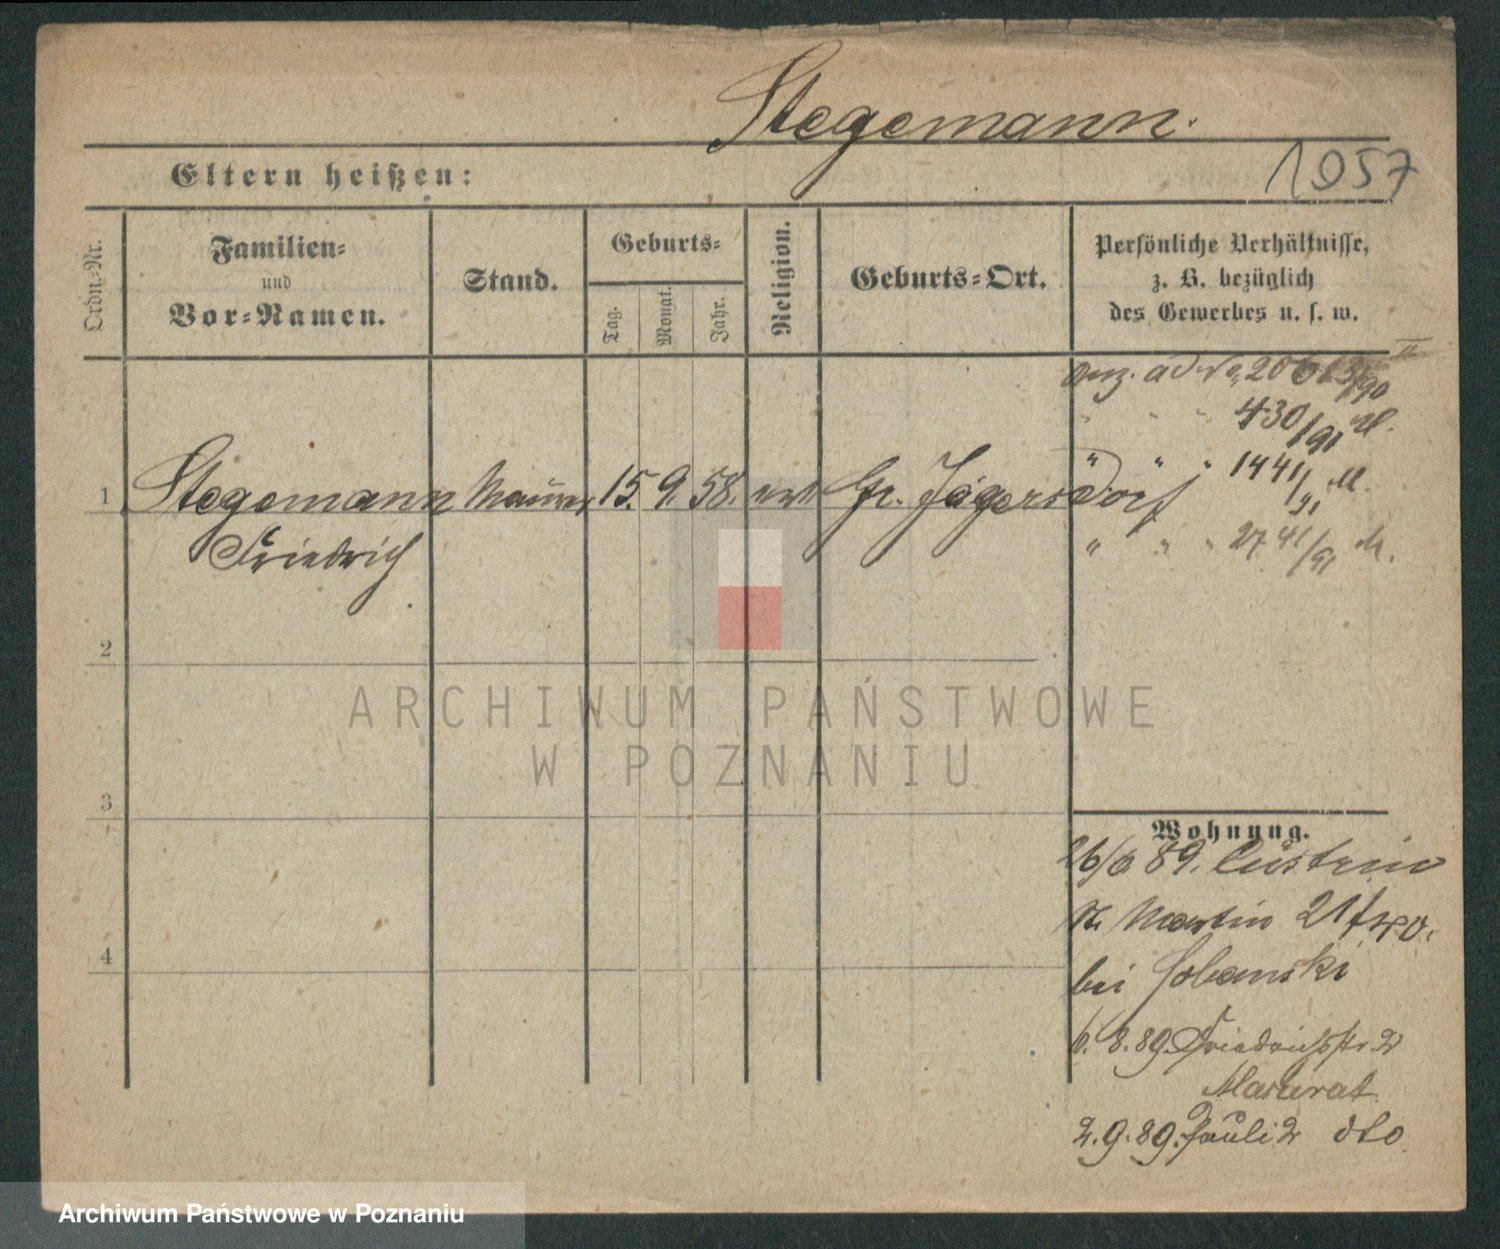 Stegemann.
1957
Eltern heißen:
Ordn.-Nr.
Familien-
und
Vor-Namen.
Stand.
Geburts-
Tag.
Monat.
Jahr.
Religion.
Geburts-Ort.
Persönliche Verhältnisse,
z. B. bezüglich
des Gewerbes u. s. w.
430/91
1 Stegemann Maurer 15. 9. 58. Gr. Jägersdorf
Friedrich
" " " 1441/91
" " " 2741/91
2
ARCHIWUM PAŃSTWOWE
W POZNANIU
3
4
Wohnung.
26/6 89. Cüstrin
St. Martin 21
bei
6. 8. 89. Friedrichstr. 2
Masurat
2. 9. 89. Pauli 2 dto.
Archiwum Państwowe w Poznaniu